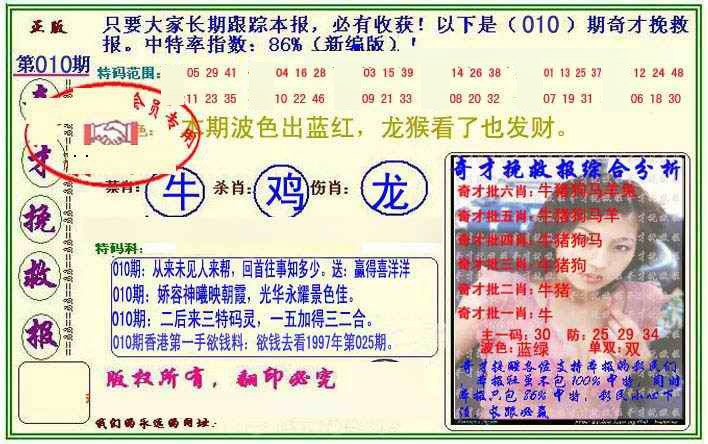 正版
只要大家长期跟踪本报，必有收获！以下是（010）期奇才挽救
报。中特率指数：86%（新编版）！
第010期
特码范围：
05 29 41
04 16 28
03 15 39
14 26 38
01 13 25 37
12 24 48
11 23 35
10 22 46
09 21 33
08 20 32
07 19 31
06 18 30
会员专用
色：本期波色出蓝红，龙猴看了也发财。
才
挽
救
报
禁肖：牛 杀肖：鸡 伤肖：龙
特码科：
010期：从来未见人来帮，回首往事知多少。送：赢得喜洋洋
010期：娇容神曦映朝霞，光华永耀景色佳。
010期：二后来三特码灵，一五加得三二合。
010期香港第一手欲钱料：欲钱去看1997年第025期。
版权所有，翻印必究
我们的永远的网址：
奇才挽救报综合分析
奇才批六肖：牛猪狗马羊兔
奇才批五肖：牛猪狗马羊
奇才批四肖：牛猪狗马
奇才批三肖：牛猪狗
奇才批二肖：牛猪
奇才批一肖：牛
主一码：30 防：25 29 34
波色：蓝绿 单双：双
奇才挽救各位支持本报的彩民们
，本报社虽不包100%中特，同时
本报只包86%中特，彩民小心下
注，长跟必赢